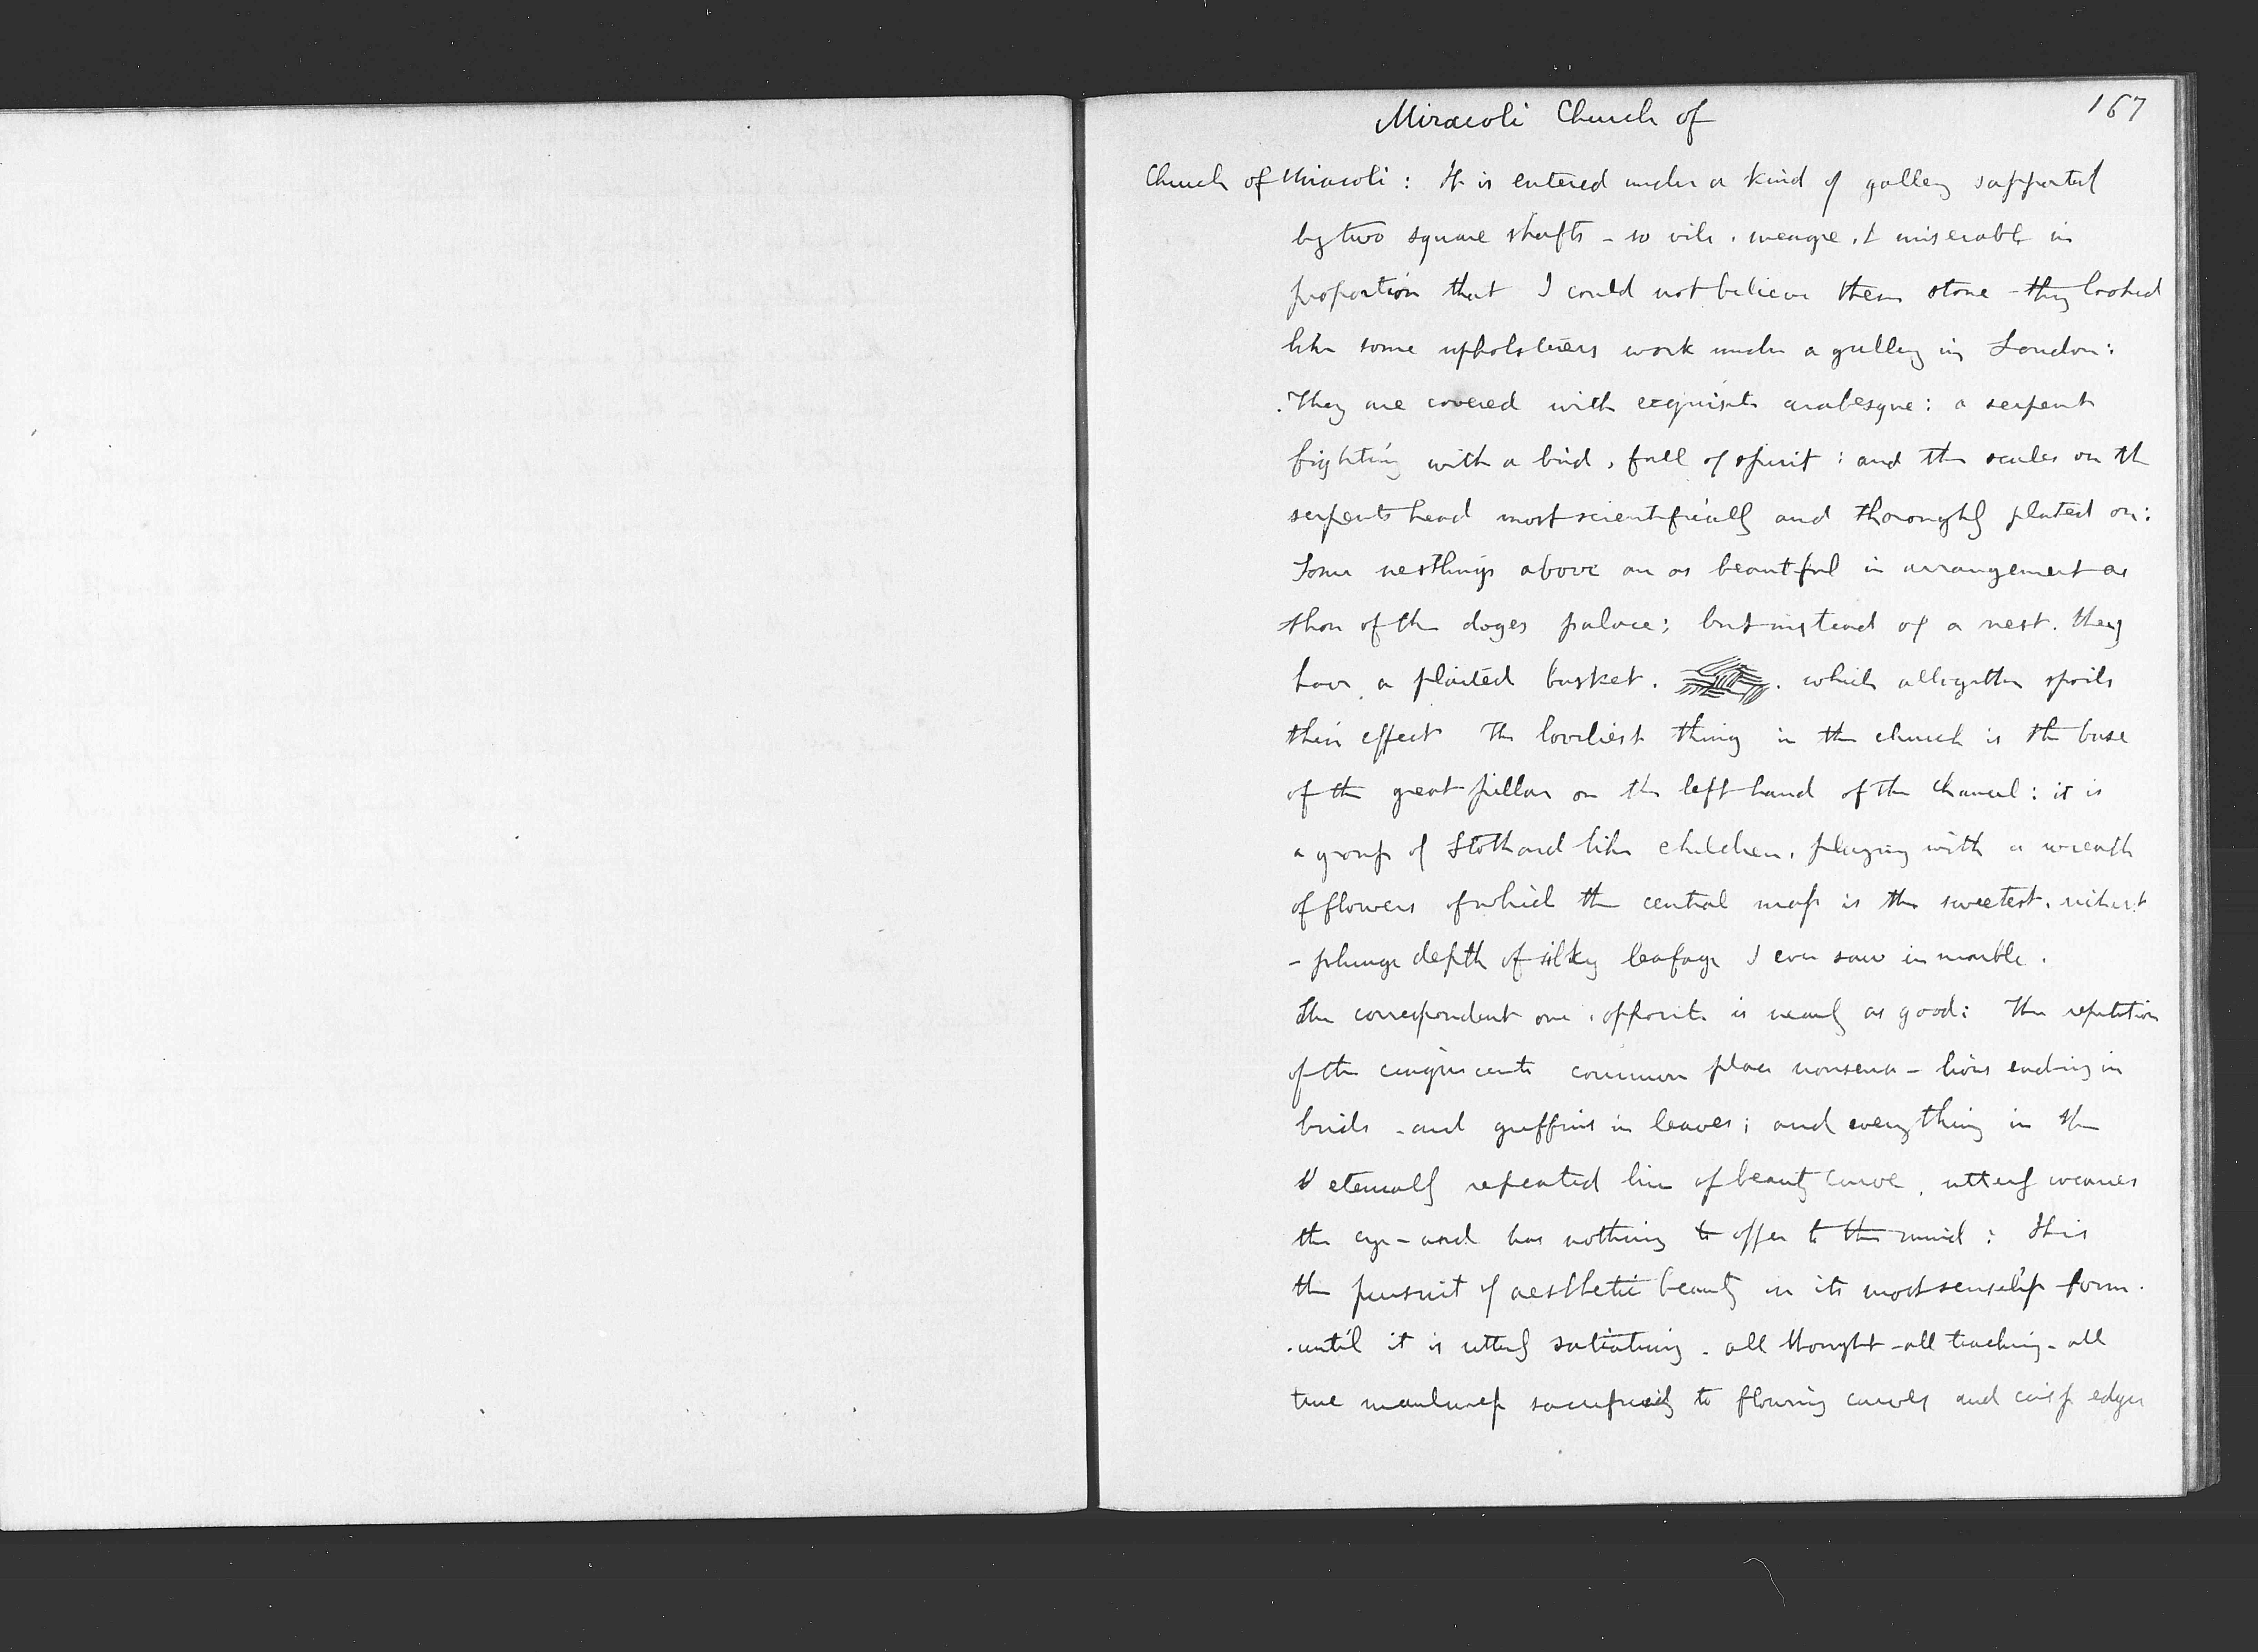 Miracoli Church of
167
Church of Miracoli: It is entered under a kind of gallery supported
by two square shafts - so vile, meagre, & miserable in
proportion that I could not believe them stone - they looked
like some upholsterers work under a gallery in London:
They are covered with exquisite arabesque: a serpent
fighting with a bird, full of spirit: and the scales on the
serpents head most scientifically and thoroughly plated on:
Some nestlings above are as beautiful in arrangement as
those of the doges palace; but instead of a nest. they
have a plaited basket. which altogether spoils
their effect The loveliest thing in the church is the base
of the great pillar on the left hand of the chancel: it is
a group of Stothard like children, playing with a wreath
of flowers of which the central mass is the sweetest, richest
- plunge depth of silky leafage I ever saw in marble.
The correspondent one, opposite is nearly as good: The repetition
of the cinquecento common place nonsense - lions ending in
birds - and griffins in leaves; and everything in the
eternally repeated line of beauty curve, utterly wearies
the eye - and has nothing to offer to the mind: It is
the pursuit of aesthetic beauty in its most senseless form.
until it is utterly satiating - all thought - all teaching - all
true manliness sacrificed to flowing curves and crisp edges